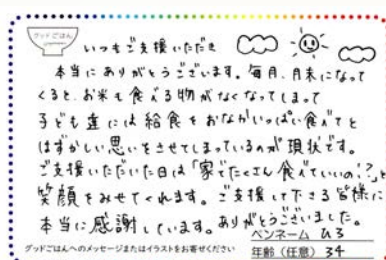 グッドごはん
いつもご支援いただき
本当にありがとうございます。毎月、月末になって
くると、お米も食べる物がなくなってしまって
子ども達には給食をおなかいっぱい食べてと
はずかしい思いをさせてしまっているのが現状です。
ご支援いただいた日は「家でたくさん食べていいの!?」と
笑顔をみせてくれます。ご支援して下さる皆様に
本当に感謝しています。ありがとうございました。
グッドごはんへのメッセージまたはイラストをお寄せください
ペンネーム ひろ
年齢(任意) 34